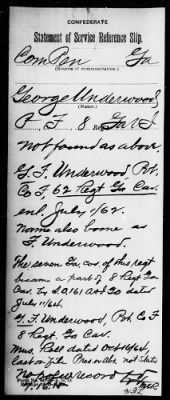 CONFEDERATE
Statement of Service Reference Slip.
Com Pen Ga
(Source of communication.)
George Underwood,
(Name.)
P F 8 Ga V I
Not found as above.
G. F. Underwood, Pvt.
Co F 62 Regt Ga Cav.
enl. July 1/62.
Name also borne as
F. Underwood.
The seven Ga. cos. of this regt
became a part of 8 Regt Ga
Cav. by S.O. 161 A&I GO dated
July 11/64.
G. F. Underwood, Pvt. Co F
8 Regt Ga Cav.
Mus Roll dated Oct
last on file
No record